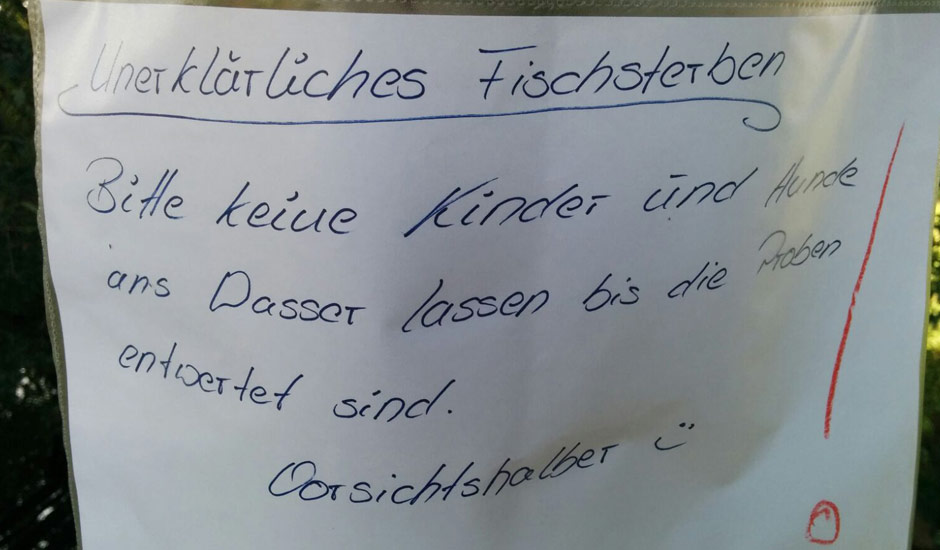 Unerklärliches Fischsterben
Bitte keine Kinder und Hunde
ans Wasser lassen bis die Proben
entwertet sind.
Vorsichtshalber ü